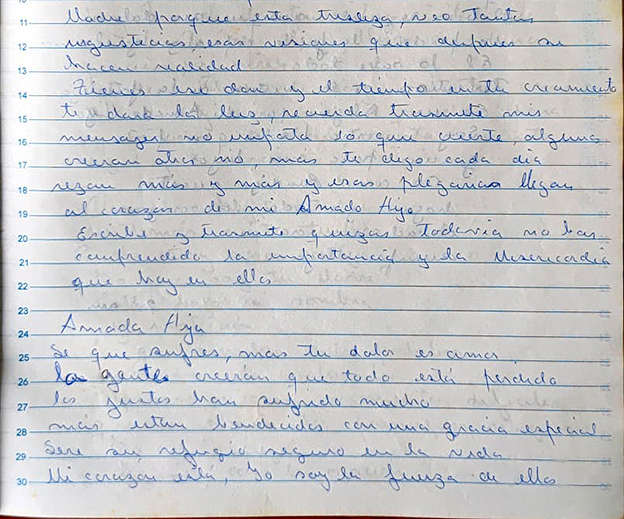 11 Madre porque esta tristeza, veo tantas
12 injusticias, esas visiones que despues se
13 hacen realidad
14 Tienes ese don y el tiempo esta creciento
15 te dara la luz, recuerda transmite mis
16 mensages no importa lo que cueste, algunos
17 creeran otros no, mas te digo cada dia
rezan más y más y esas plegarias llegan
18 al corazón de mi Amado Hijo
19 Escribe y transmite quizas todavia no has
20 comprendido la importancia y la Misericordia
21 que hay en ellos
22
23
24 Amada Hija
25 Se que sufres, mas tu dolor es amor
26 la gente creerán que todo está perdido
27 los justos han sufrido mucho
28 más estan bendecidos con una gracia especial
29 Sere su refugio seguro en la vida
30 Mi corazón está, Yo soy la fuerza de ellos